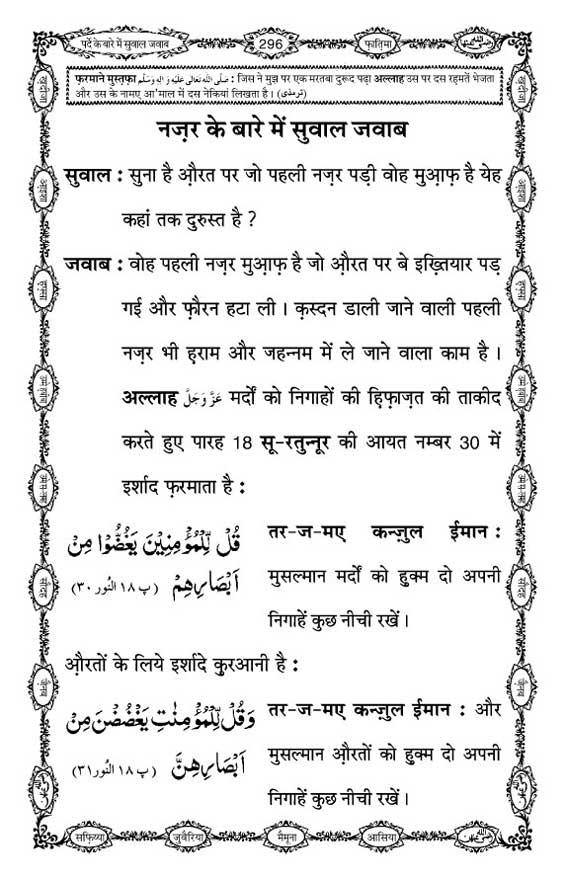 पर्दे के बारे में सुवाल जवाब
296
फ़ातिमा
फ़रमाने मुस्तफ़ा صَلَّى اللهُ تَعَالٰى عَلَيْهِ وَاٰلِهٖ وَسَلَّم : जिस ने मुझ पर एक मरतबा दुरूद पढ़ा अल्लाह उस पर दस रहमतें भेजता
और उस के नामए आ'माल में दस नेकियां लिखता है। (ترمذی)
नज़र के बारे में सुवाल जवाब
सुवाल : सुना है औ़रत पर जो पहली नज़र पड़ी वोह मुआ़फ़ है येह
कहां तक दुरुस्त है ?
जवाब : वोह पहली नज़र मुआ़फ़ है जो औ़रत पर बे इख़्तियार पड़
गई और फ़ौरन हटा ली । क़स्दन डाली जाने वाली पहली
नज़र भी ह़राम और जहन्नम में ले जाने वाला काम है ।
अल्लाह عَزَّوَجَلَّ मर्दों को निगाहों की ह़िफ़ाज़त की ताकीद
करते हुए पारह 18 सू-रतुन्नूर की आयत नम्बर 30 में
इर्शाद फ़रमाता है :
قُلْ لِّلْمُؤْمِنِیْنَ یَغُضُّوْا مِنْ
اَبْصَارِهِمْ (پ ١٨ النُّور ٣٠)
तर-ज-मए कन्ज़ुल ईमान :
मुसल्मान मर्दों को हु़क्म दो अपनी
निगाहें कुछ नीची रखें ।
औ़रतों के लिये इर्शादे क़ुरआनी है :
وَقُلْ لِّلْمُؤْمِنٰتِ یَغْضُضْنَ مِنْ
اَبْصَارِهِنَّ (پ ١٨ النُّور ٣١)
तर-ज-मए कन्ज़ुल ईमान : और
मुसल्मान औ़रतों को हु़क्म दो अपनी
निगाहें कुछ नीची रखें ।
सफ़िय्या
जुवैरिया
मैमूना
आसिया